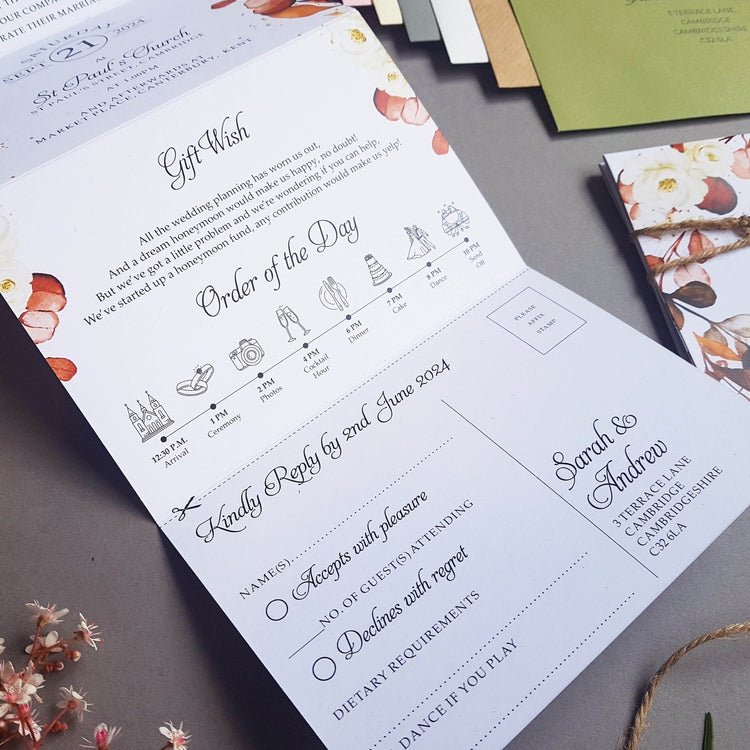 OUR COMPAN
RATE THEIR MARRIAGE
SATURDAY
SEPT 21 2024
AT
St Paul's Church
ST PAUL'S STREET, CAMBRIDGE
AT 1.00PM
AND AFTERWARDS AT
MARKET PLACE, CANTERBURY, KENT
Gift Wish
All the wedding planning has worn us out,
And a dream honeymoon would make us happy, no doubt!
But we've got a little problem and we're wondering if you can help,
We've started up a honeymoon fund, any contribution would make us yelp!
Order of the Day
12:30 P.M.
Arrival
1 PM
Ceremony
2 PM
Photos
4 PM
Cocktail
Hour
6 PM
Dinner
7 PM
Cake
8 PM
Dance
10 PM
Send
Off
Kindly Reply by 2nd June 2024
NAME(S)
Accepts with pleasure
NO. OF GUEST(S) ATTENDING
Declines with regret
DIETARY REQUIREMENTS
DANCE IF YOU PLAY
PLEASE
AFFIX
STAMP
Sarah &
Andrew
3 TERRACE LANE
CAMBRIDGE
CAMBRIDGESHIRE
C32 6LA
3 TERRACE LANE
CAMBRIDGE
CAMBRIDGESHIRE
C32 6LA